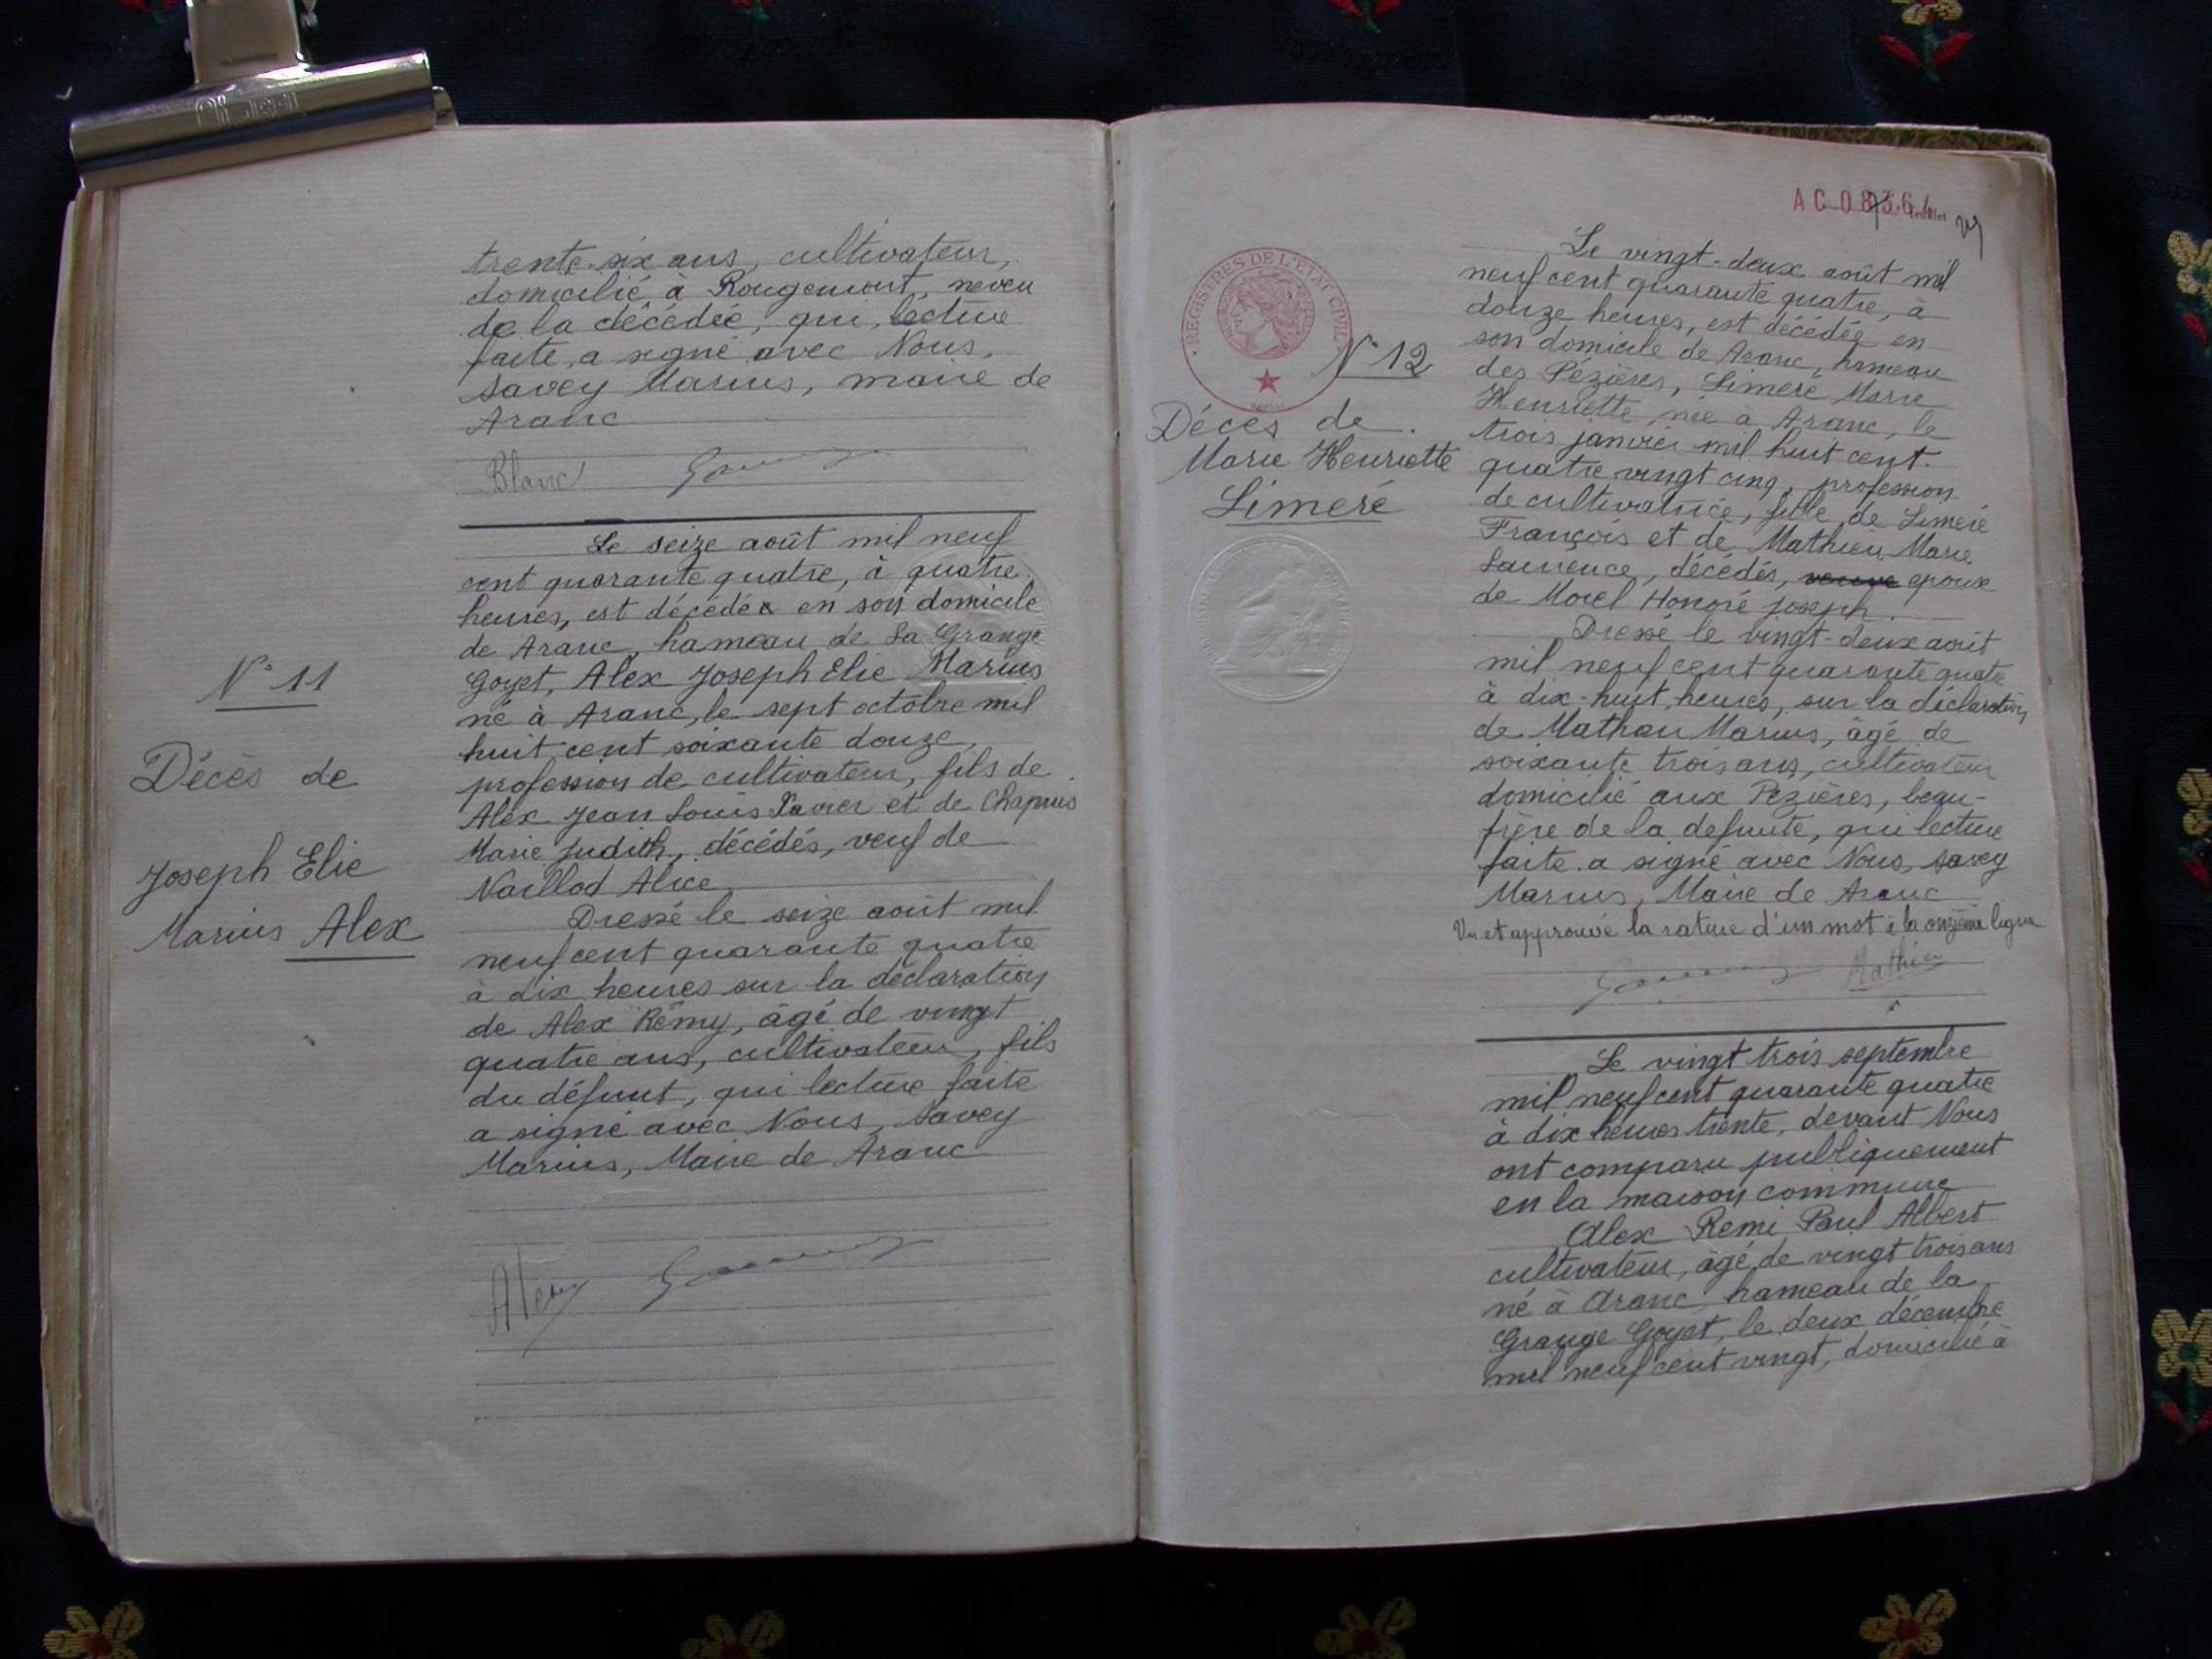 trente-six ans, cultivateur,
domicilié à Rougemont, neveu
de la décédée, qui, lecture
faite, a signé avec Nous,
Savey Marius, maire de
Aranc
Blanc
N° 11
Décès de
Joseph Elie
Marius Alex
Le seize août mil neuf
cent quarante quatre, à quatre
heures, est décédé en son domicile
de Aranc, hameau de La Grange
Goyet, Alex Joseph Elie Marius
né à Aranc, le sept octobre mil
huit cent soixante douze,
profession de cultivateur, fils de
Alex Jean Louis Xavier et de Chapuis
Marie Judith, décédés, veuf de
Naillod Alice
Dressé le seize août mil
neuf cent quarante quatre
à dix heures sur la déclaration
de Alex Rémy, âgé de vingt
quatre ans, cultivateur, fils
du défunt, qui lecture faite
a signé avec Nous, Savey
Marius, Maire de Aranc
Alex
REGISTRES DE L'ETAT CIVIL
N° 12
Décès de
Marie Henriette
Limeré
Le vingt-deux août mil
neuf cent quarante quatre, à
douze heures, est décédée en
son domicile de Aranc, hameau
des Pézières, Limeré Marie
Henriette, née à Aranc, le
trois janvier mil huit cent
quatre vingt cinq, profession
de cultivatrice, fille de Limeré
François et de Mathieu Marie
Laurence, décédés, veuve epoux
de Morel Honoré Joseph
Dressé le vingt-deux août
mil neuf cent quarante quatre
à dix-huit heures, sur la déclaration
de Mathieu Marius, âgé de
soixante trois ans, cultivateur
domicilié aux Pézières, beau-
frère de la defunte, qui lecture
faite a signé avec Nous, Savey
Marius, Maire de Aranc
Vu et approuvé la rature d'un mot à la onzième ligne
Mathieu
Le vingt trois septembre
mil neuf cent quarante quatre
à dix heures trente, devant Nous
ont comparu publiquement
en la maison commune
Alex Remi Paul Albert
cultivateur, âgé de vingt trois ans
né à Aranc hameau de la
Grange Goyet, le deux décembre
mil neuf cent vingt, domicilié à